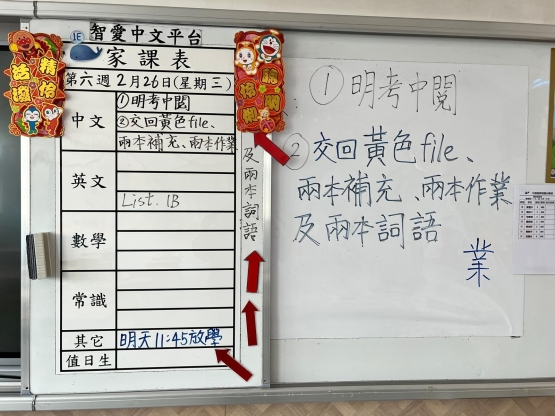 1E
智愛中文平台
家課表
第六週 2月26日(星期三)
中文
①明考中閱
②交回黃色file、
兩本補充、兩本作業
及兩本詞語
英文
List. 1B
數學
常識
其它
明天11:45放學
值日生
①明考中閱
②交回黃色file、
兩本補充、兩本作業
及兩本詞語
業